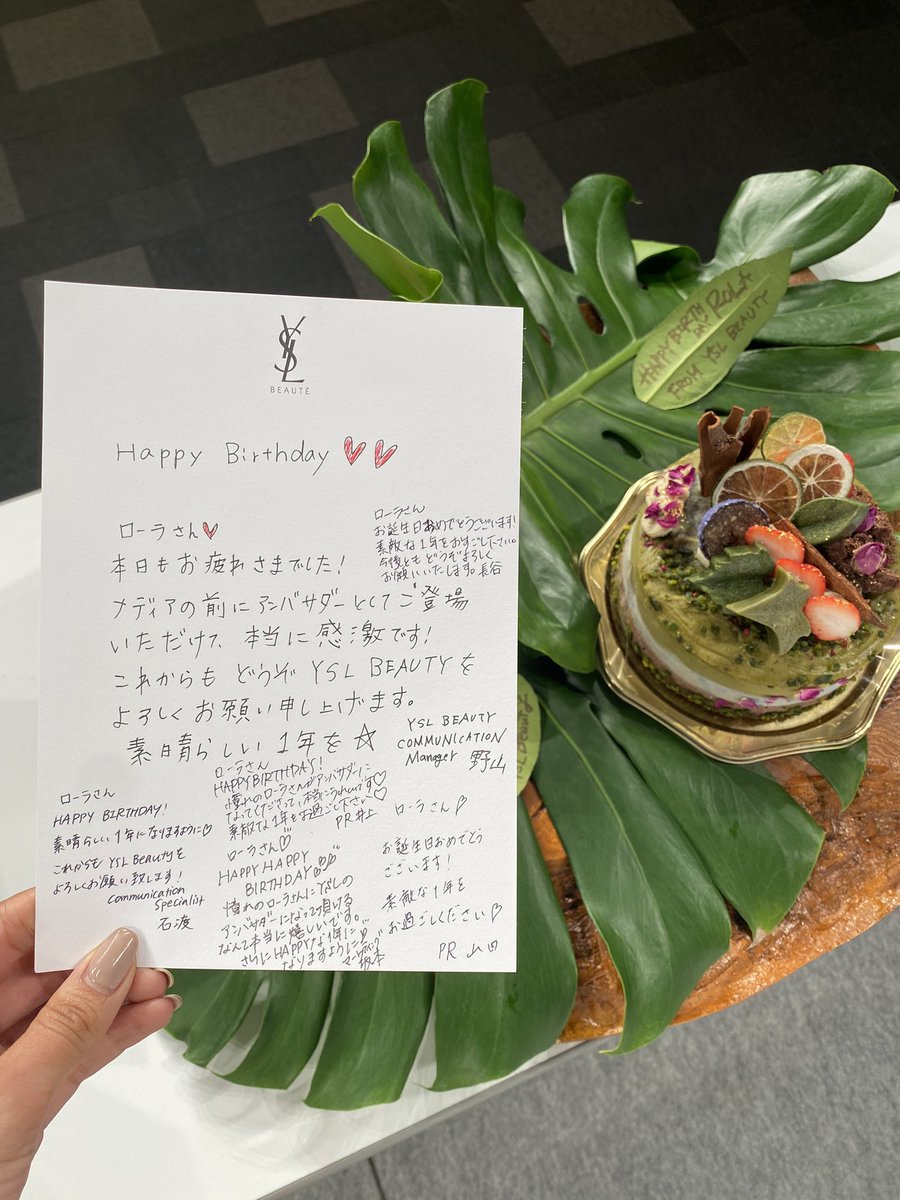 YSL
BEAUTÉ
Happy Birthday
ローラさん
本日もお疲れさまでした！
メディアの前にアンバサダーとしてご登場
いただけて、本当に感激です！
これからも どうぞ YSL BEAUTYを
よろしくお願い申し上げます。
素晴らしい 1年を☆
YSL BEAUTY
COMMUNICATION
Manager 野山
ローラさん
お誕生日おめでとうございます！
素敵な1年をおすごし下さい。
今後とも どうぞよろしく
お願いいたします。長谷
ローラさん
HAPPY BIRTHDAY!
素晴らしい1年になりますように♡
これからも YSL Beautyを
よろしくお願い致します！
Communication
Specialist
石渡
ローラさん
HAPPY BIRTHDAY!
憧れのローラさんがアンバサダーに
なってくださって、本当にうれしいです♡
素敵な1年をお過ごし下さい♡
PR 井上
ローラさん♡
HAPPY HAPPY
BIRTHDAY
憧れのローラさんに YSLの
アンバサダーになって頂ける
なんて本当に嬉しいです。
さらにHAPPYな1年に
なりますように
ローラさん♡
お誕生日おめでとう
ございます！
素敵な1年を
お過ごしください♡
PR 山田
HAPPY BIRTH
DAY ROLA
FROM YSL BEAUTY
YSL Beauty